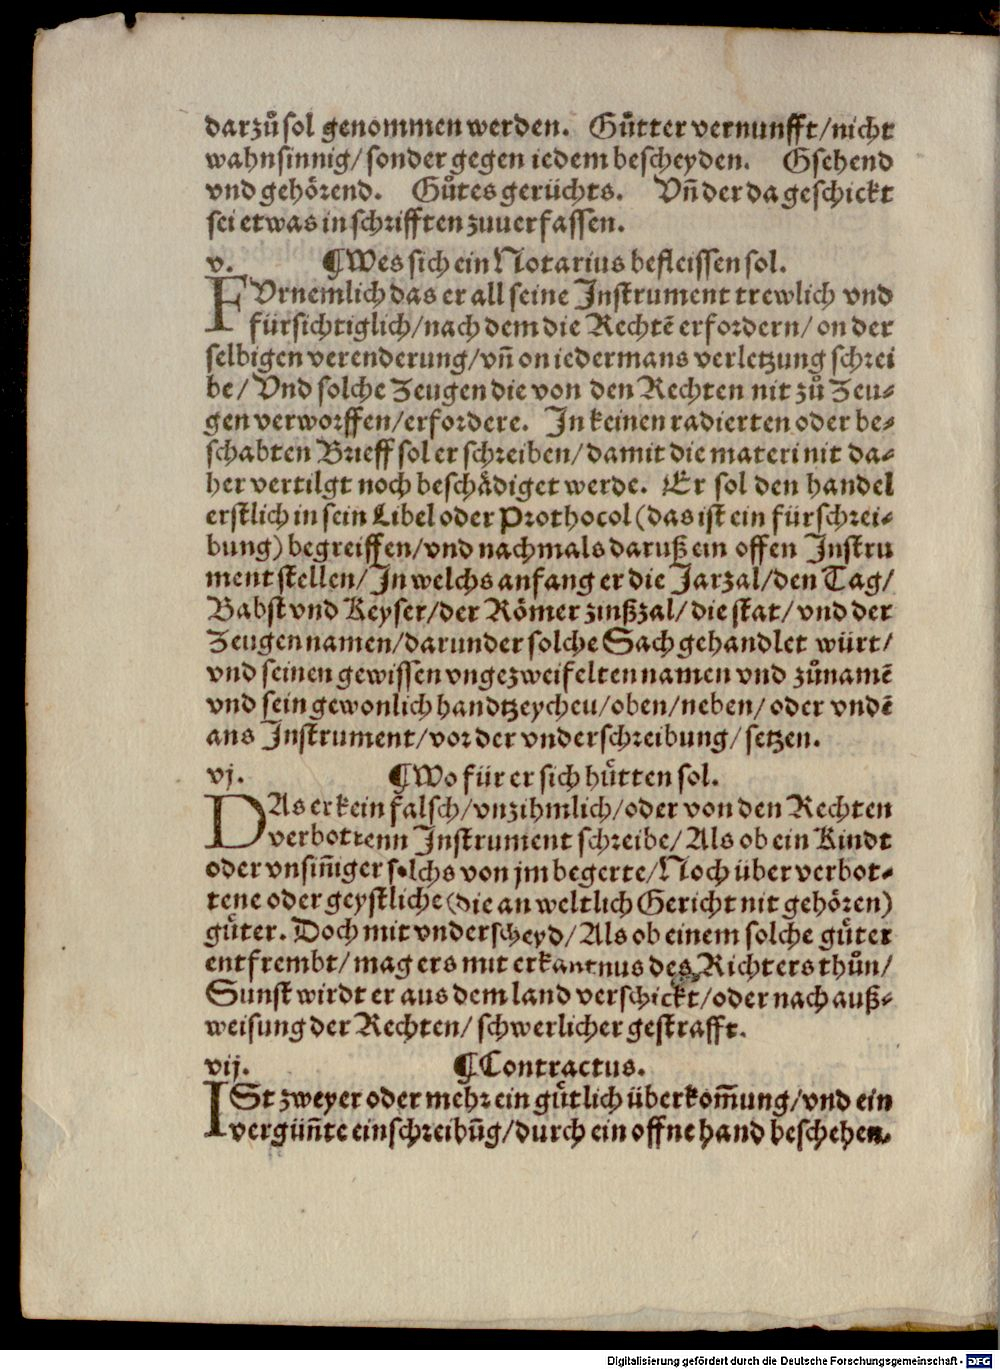 darzůsol genommen werden. Gůtter vernunfft/nicht
wahnsinnig/sonder gegen iedem bescheyden. Gsehend
vnd gehörend. Gůtes gerüchts. Vñ der da geschickt
sei etwas in schrifften zuuerfassen.
v. ¶Wes sich ein Notarius befleissen sol.
FVrnemlich das er all seine Instrument trewlich vnd
fürsichtiglich/nach dem die Rechtē erfordern/on der
selbigen verenderung/vñ on iedermans verletzung schrei
be/Vnd solche Zeugen die von den Rechten nit zů Zeu-
gen verworffen/erfordere. In keinen radierten oder be-
schabten Brieff sol er schreiben/damit die materi nit da-
her vertilgt noch beschädiget werde. Er sol den handel
erstlich in sein Libel oder Prothocol (das ist ein fürschrei-
bung) begreiffen/vnd nachmals daruß ein offen Instru
ment stellen/In welchs anfang er die Jarzal/den Tag/
Babst vnd Keyser/der Römer zinßzal/die stat/vnd der
Zeugen namen/darunder solche Sach gehandlet würt/
vnd seinen gewissen vngezweifelten namen vnd zůnamē
vnd sein gewonlich handtzeycheu/oben/neben/oder vndē
ans Instrument/vor der vnderschreibung/setzen.
vj. ¶Wo für er sich hütten sol.
DAs er kein falsch/vnzihmlich/oder von den Rechten
verbottenn Instrument schreibe/Als ob ein Kindt
oder vnsiñiger solchs von jm begerte/Noch über verbot-
tene oder geystliche (die an weltlich Gericht nit gehören)
güter. Doch mit vnderscheyd/Als ob einem solche güter
entfrembt/mag ers mit erkantnus des Richters thůn/
Sunst wirdt er aus dem land verschickt/oder nach auß-
weisung der Rechten/schwerlicher gestrafft.
vij. ¶Contractus.
ISt zweyer oder mehr ein gütlich überkom̃ung/vnd ein
vergüñte einschreibūg/durch ein offne hand beschehen.
Digitalisierung gefördert durch die Deutsche Forschungsgemeinschaft - DFG